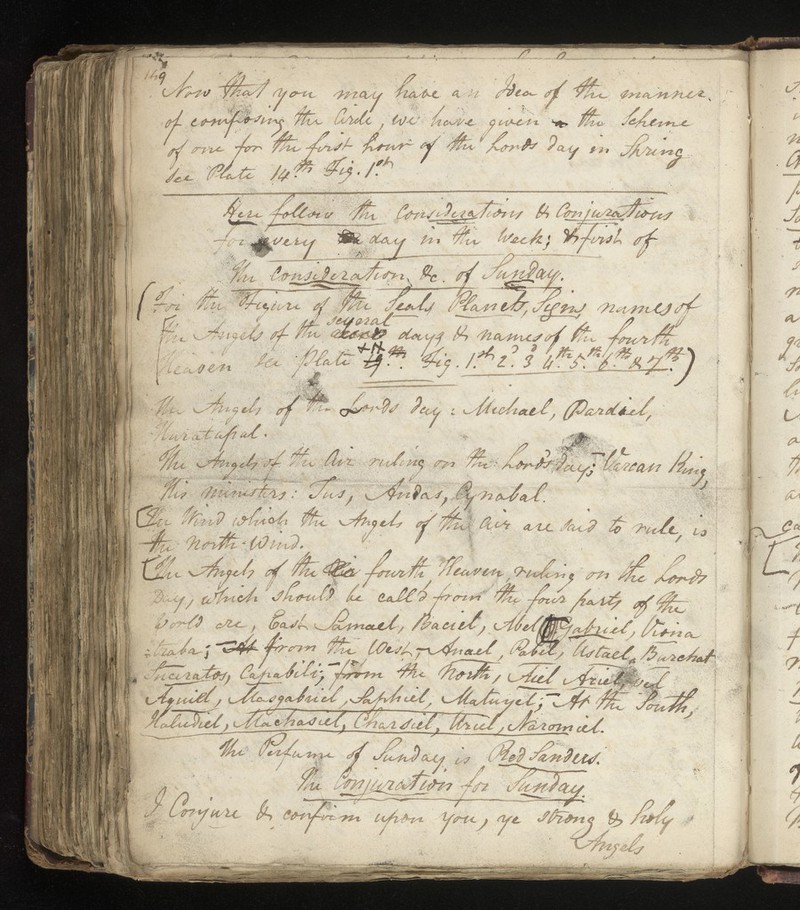 149
Now that you may have an Idea of the manner
of composing the Circle, we have given the Scheme
of one for the first hour of the Lords day in Spring
See Plate 14th Fig. 1st.
Here follow the Considerations & Conjurations
for every day in the Week; & first of
the Consideration &c. of Sunday.
(For the Figure of the Seals Planets, Signs, names of
the Angels of the several days & names of the fourth
Heaven see Plate Fig. 1st 2d 3d 4th 5th 6th & 7th.)
The Angels of the Lords day: Michael, Dardiel,
Huratapal.
The Angels of the Air ruling on the Lord's day; Varcan King,
His ministers: Tus, Andas, Cynabal.
The Wind which the Angels of the Air are said to rule, is
the North-Wind.
The Angels of the fourth Heaven, ruling on the Lords
Day, which should be call'd from the four parts of the
World are, East Samael, Baciel, Abel Gabriel, Viona
traba; from the West, Anael, Pabel, Ustael, Burchat
Suceratos, Capabili; from the North, Aiel Ariel, vel
Aquiel, Masgabriel, Saphiel, Matuyel; At the South,
Haludiel, Machasiel, Charsiel, Uriel, Naromiel.
The Perfume of Sunday is Red Sanders.
The Conjuration for Sunday.
I Conjure & confirm upon you, ye strong & holy
Angels